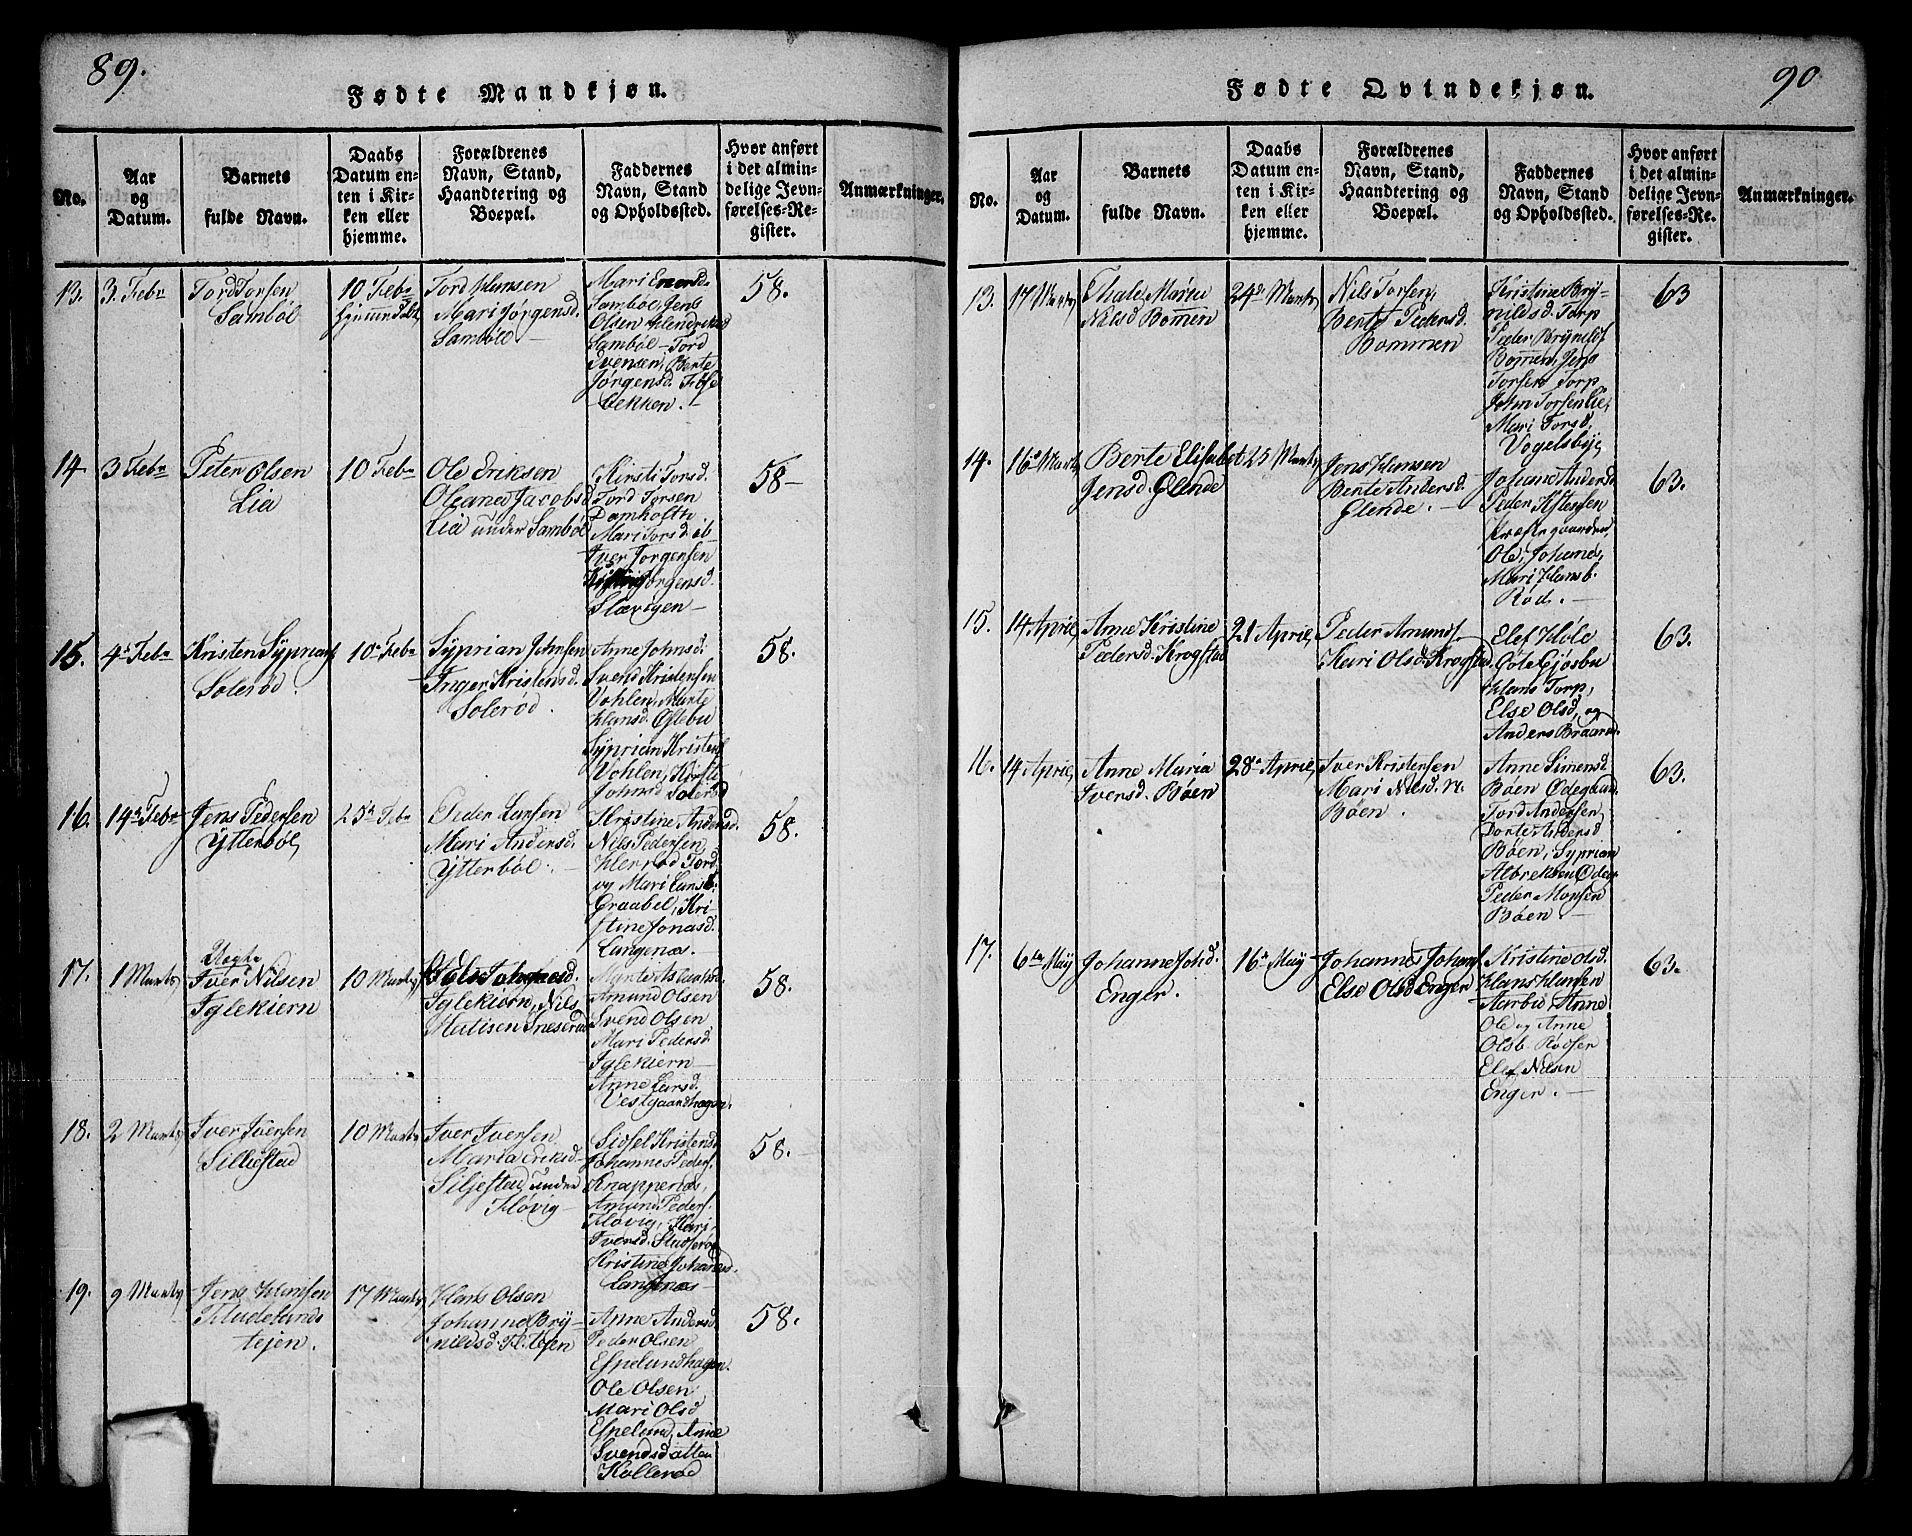 89.
Fødte Mandkjøn.
No.
Aar
og
Datum.
Barnets
fulde Navn.
Daabs
Datum en-
ten i Kir-
ken eller
hjemme.
Forældrenes
Navn, Stand,
Haandtering og
Boepæl.
Faddernes
Navn, Stand
og Opholdssted.
Hvor anført
i det almin-
delige Jevn-
førelses-Re-
gister.
Anmærkninger.
13.
3 Febr
Tord Torsen
Sambøl
10 Febr
hjemme døbt
Tord Hansen
Mari Jørgensd.
Sambøle
Mari Enersd.
Sambøl, Jens
Olsen Hendriksd
Sambøl Tord
Svensen, Berte
Jørgensd. Fosse
bekken.
58.
14
3 Febr
Peter Olsen
Lia
10 Febr
Ole Eriksen
Oleana Jacobsd
Lia under Sambøl
Kirsti Torsd.
Tord Torsen
Damholtti
Mari Torsd. ib
Iver Jorgensen
Jørgensd.
Slævigen
58-
15.
4 Febr
Kristen Syprians
Solerød.
10 Febr
Syprian Johnsen
Inger Kristensd.
Solerød.
Anne Johnsd.
Svend Kristensen
Vohlen, Marte
Hansd. Østebu
Syprian Kristens
Vohlen, Kirsti
Johnsd Solerød
58.
16.
14 Febr
Jens Pedersen
Ytterbøl
25 Febr
Peder Larsen
Mari Andersd.
Ytterbøl.
Kristine Andersd.
Nils Pedersen
Herrød Tord
og Mari Larsb.
Graabel, Kri-
stine Jonasd.
Langenæs.
58.
17.
1 Marts
Uegte
Iver Nilsen
Iglekiern
10 Marts
Iglekiern, Nils
Matisen Sneserød
Amund Olsen
Svend Olsen
Mari Pedersd.
Iglekiern
Anne Larsd.
Vestgaardhagen.
58.
18.
2 Marts
Iver Iversen
Silliestad
10 Marts
Iver Iversen
Maria Eriksd
Siljestad under
Kløvig
Sidsel Kristensd
Johannes Peders.
Knappenæs,
Amund Peders.
Kløvig, Kari
Iversd. Studserød
Kristine Johannesd
Langenæs
58.
19.
9 Marts
Jens Hansen
Fladelunds
tejen.
17 Marts
Hans Olsen
Johanne Bry-
nildsd. Fl. tejen
Anne Andersd.
Peder Olsen
Espelundhagen.
Ole Olsen
Mari Olsd
Espelund, Anne
Svendsdatter
Kollerød
58.
90
Fødte Qvindekjøn.
No.
Aar
og
Datum.
Barnets
fulde Navn.
Daabs
Datum en-
ten i Kir-
ken eller
hjemme.
Forældrenes
Navn, Stand,
Haandtering og
Boepæl.
Faddernes
Navn, Stand
og Opholdssted.
Hvor anført
i det almin-
delige Jevn-
førelses-Re-
gister.
Anmærkninger.
13.
17 Marts
Thale Maria
Nilsd Bommen
24 Marts
Nils Torsen,
Berte Pedersd.
Bommen
Kristine Bry-
nildsd. Torp
Peder Brynilds
Bommen, Jens
Torsen Torp
John Torsen Lie,
Mari Torsd,
Vogelsbye
63
14.
16 Marts
Berte Elisabet
Jensd. Glende
25 Marts
Jens Hansen
Berte Andersd.
Glende.
Johane Andersd
Peder
Præstegaarden
Ole, Johane,
Mari Hansb.
Rød.
63.
15.
14 April
Anne Kristine
Pedersd. Krogstad
21 April
Peder Amunds.
Kari Olsd Krogstad
Elef Hole
Ole Gjøsbu
Hans Torp,
Else Olsd, og
Anders Braarød
63.
16.
14 April
Anne Maria
Iversd. Bøen
28 April
Iver Kristensen
Mari Nilsd. N.
Bøen.
Anne Simensd
Bøen Ødegaard
Tord Andersen
Dorte Andersd
Bøen, Syprian
Albreksen Ødeg.
Peder Monsen
Bøen
63.
17.
6 May
Johanne Johd.
Enger.
16 May
Johannes Johans
Else Olsd Enger
Kristine Olsd.
Hans Hansen
Aarbu Anne
Ole og Anne
Olsb. Rødsen
Elef Nilsen
Enger.
63.